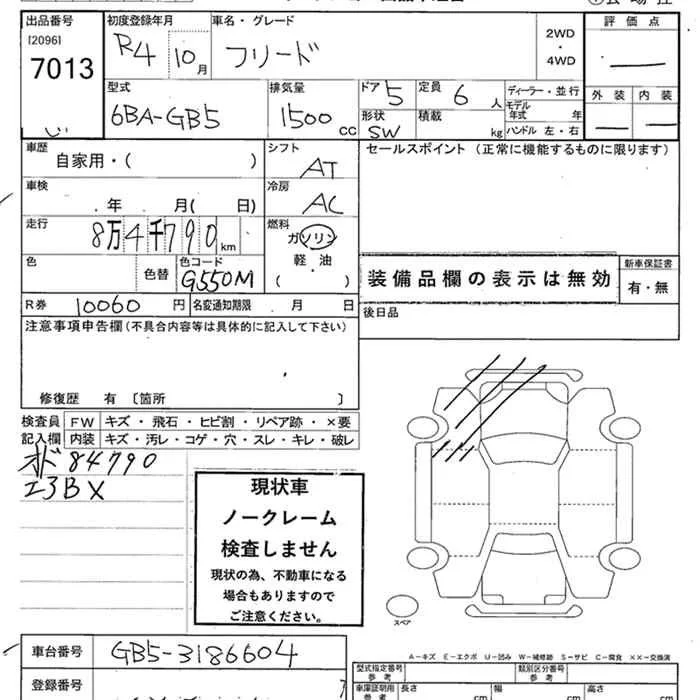 出品番号 初度登録年月 車名・グレード 評価点
[2096] 7013
R4 10月 フリード 2WD・4WD
型式 排気量 ドア 定員 ディーラー・並行 外装 内装
6BA-GB5 1500cc 5 6人 モデル年式 年
形状 SW 積載 kg ハンドル 左・右
車歴 シフト セールスポイント (正常に機能するものに限ります)
自家用・( ) AT
車検 冷房
年 月( 日) AC
走行 燃料
8万4千790km ガソリン
軽・油
( )
色 色替 色コード G550M
装備品欄の表示は無効 新車保証書 有・無
R券 10060円 名変通知期限 月 日 後日品
注意事項申告欄(不具合内容等は具体的に記入して下さい)
修復歴 有 〔箇所 〕
検査員 FW キズ・飛石・ヒビ割・リペア跡・×要
記入欄 内装 キズ・汚レ・コゲ・穴・スレ・キレ・破レ
オド84790
エ3BX
現状車
ノークレーム
検査しません
現状の為、不動車になる
場合もありますので
ご注意ください。
スペア
車台番号 GB5-3186604
A－キズ E－エクボ U－凹み W－補修跡 S－サビ C－腐食 ××－交換済
型式指定番号 参考 類別区分番号 参考
登録番号
車庫証明用 参考 長さ cm 幅 cm 高さ cm